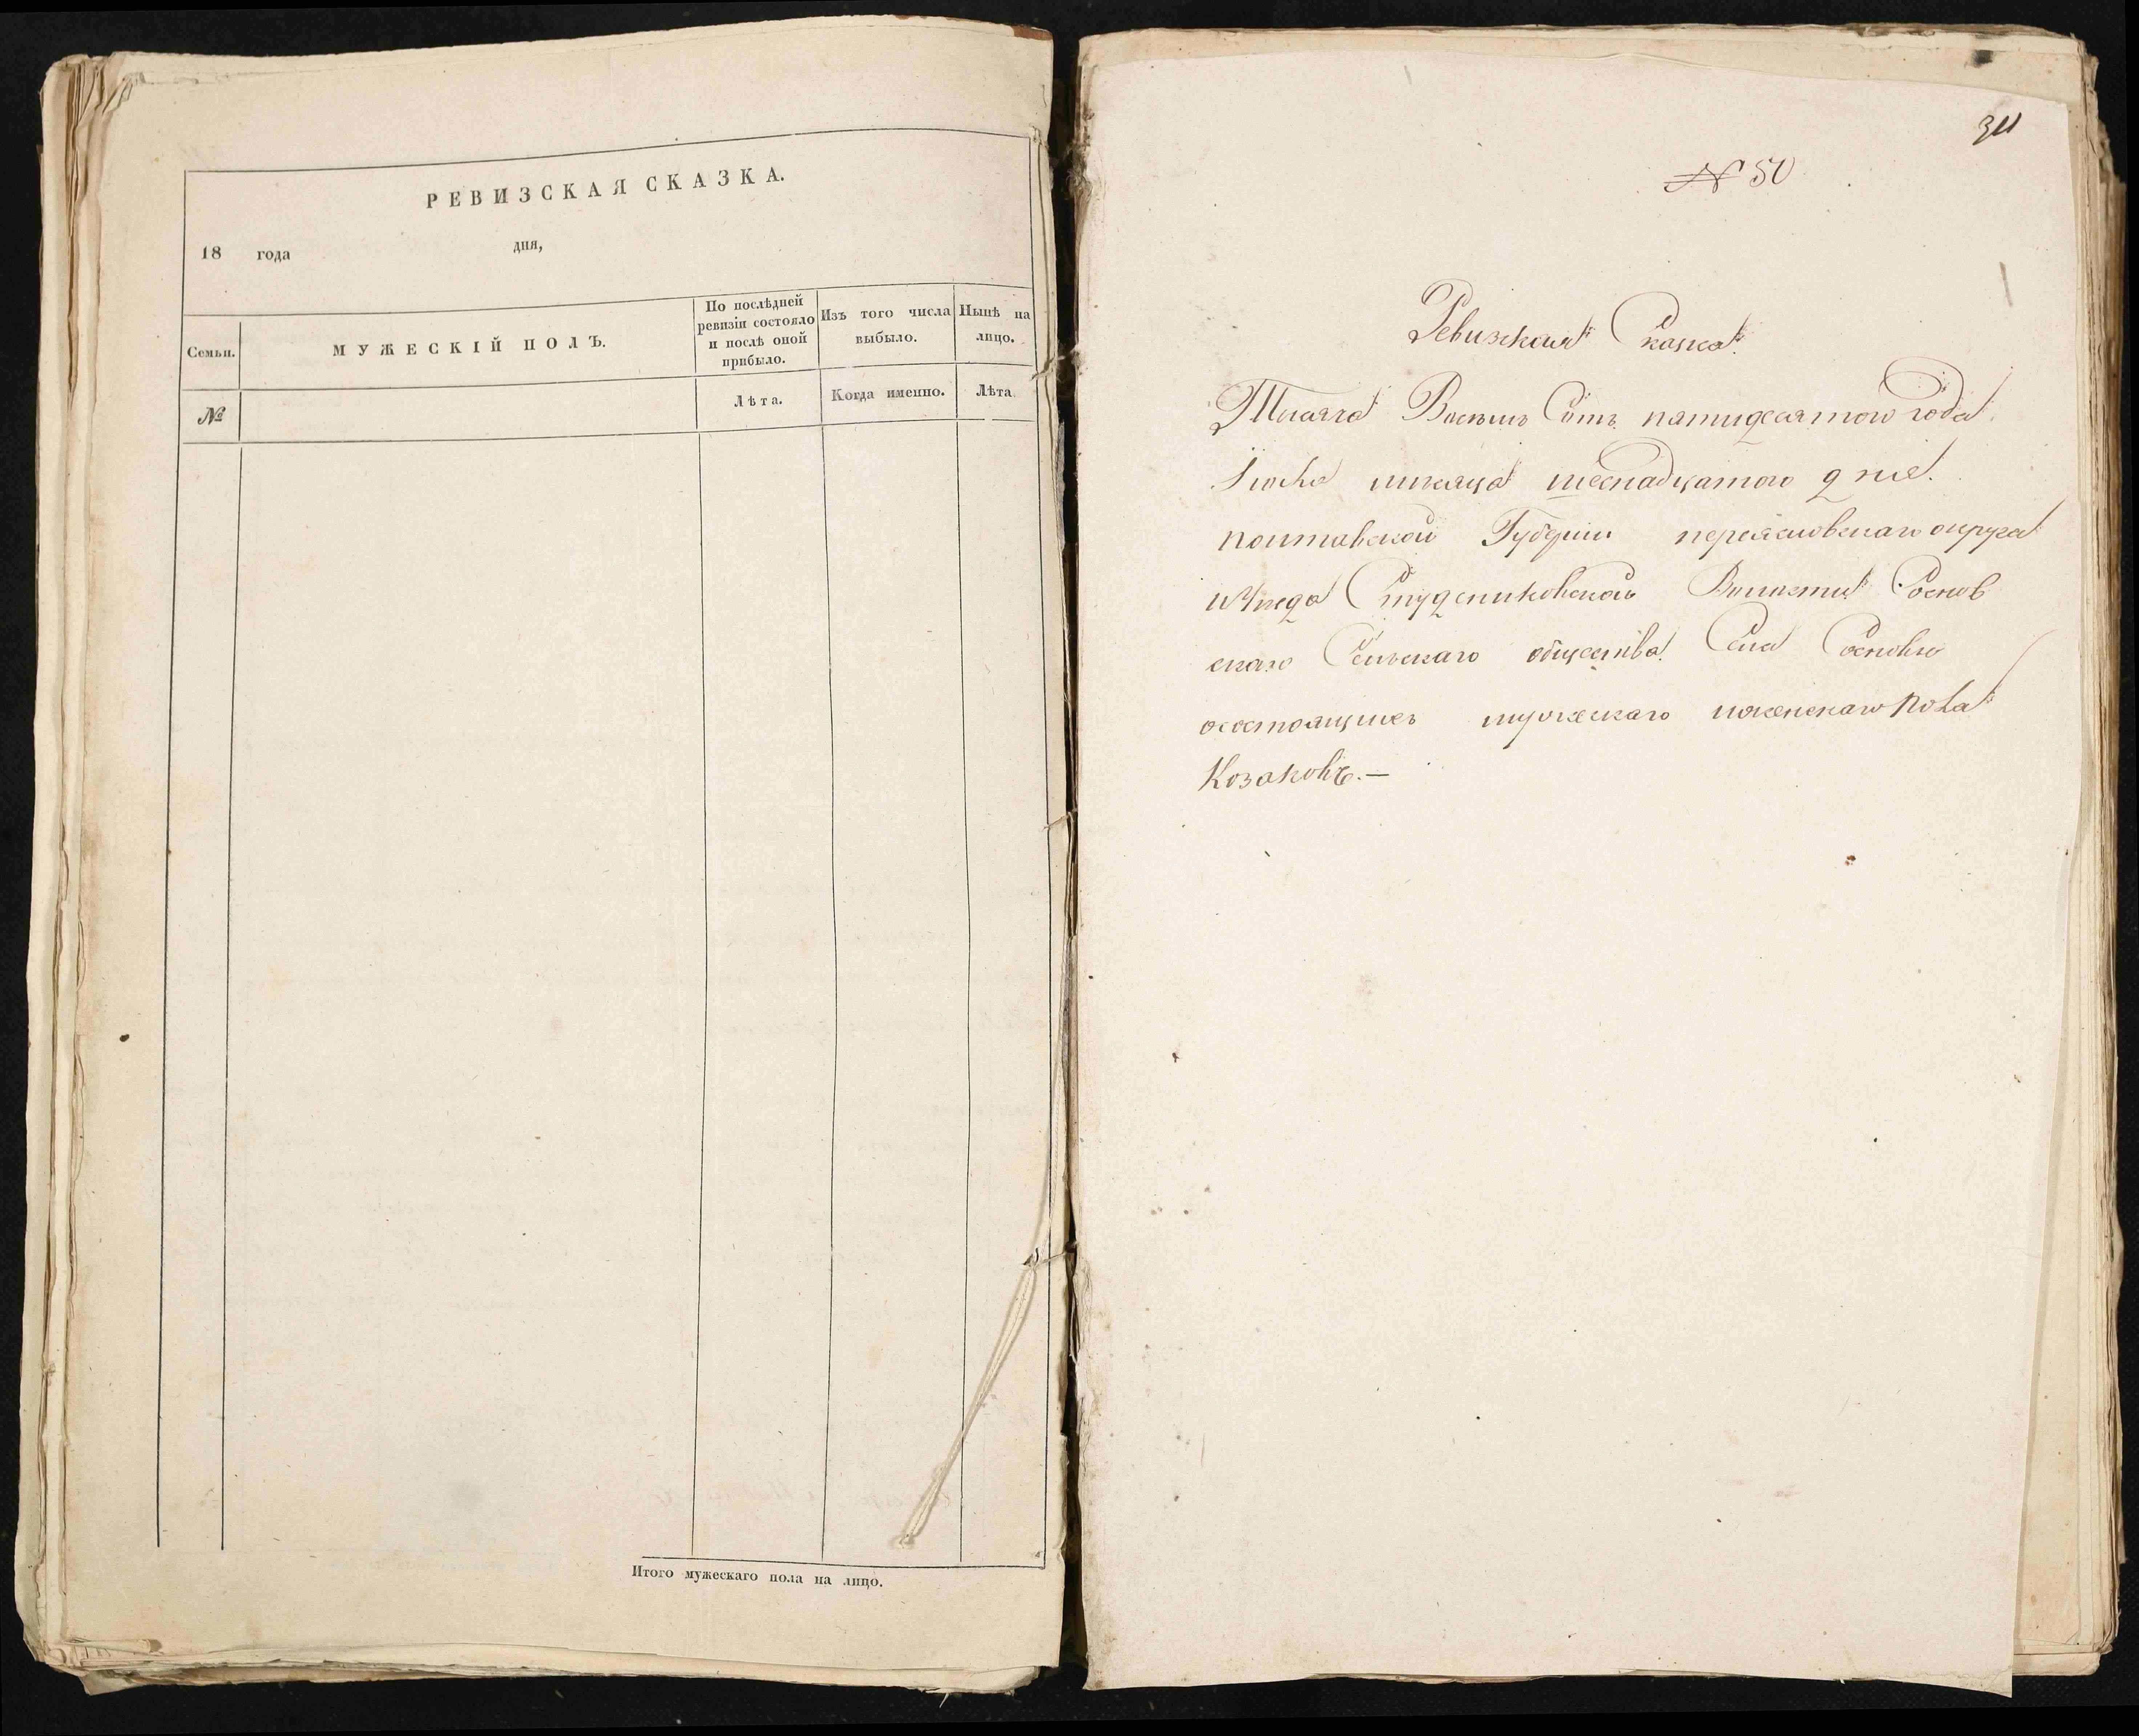 РЕВИЗСКАЯ СКАЗКА.
18 года дня,
Семьи.
МУЖЕСКІЙ ПОЛЪ.
По послѣдней
ревизіи состояло
и послѣ оной
прибыло.
Изъ того числа
выбыло.
Нынѣ на
лицо.
№
Лѣта.
Когда именно.
Лѣта
Итого мужескаго пола на лицо.
№ 50
Ревизская Сказка.
Тысяча Восемь Сотъ пятидесятого года
Іюля месяца шеснадцатого дня.
полтавской Губерніи переясловскаго округа
иУезда Студениковской Волости Соснов
скаго Сельскаго общества Села Сосновы
осостоящихъ мужескаго иженскаго пола
Козаковъ.—